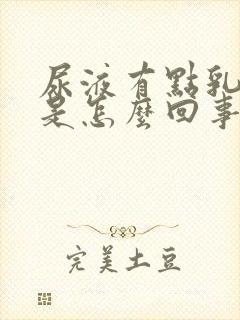 尿液有點乳
是怎麼回事
完美土豆